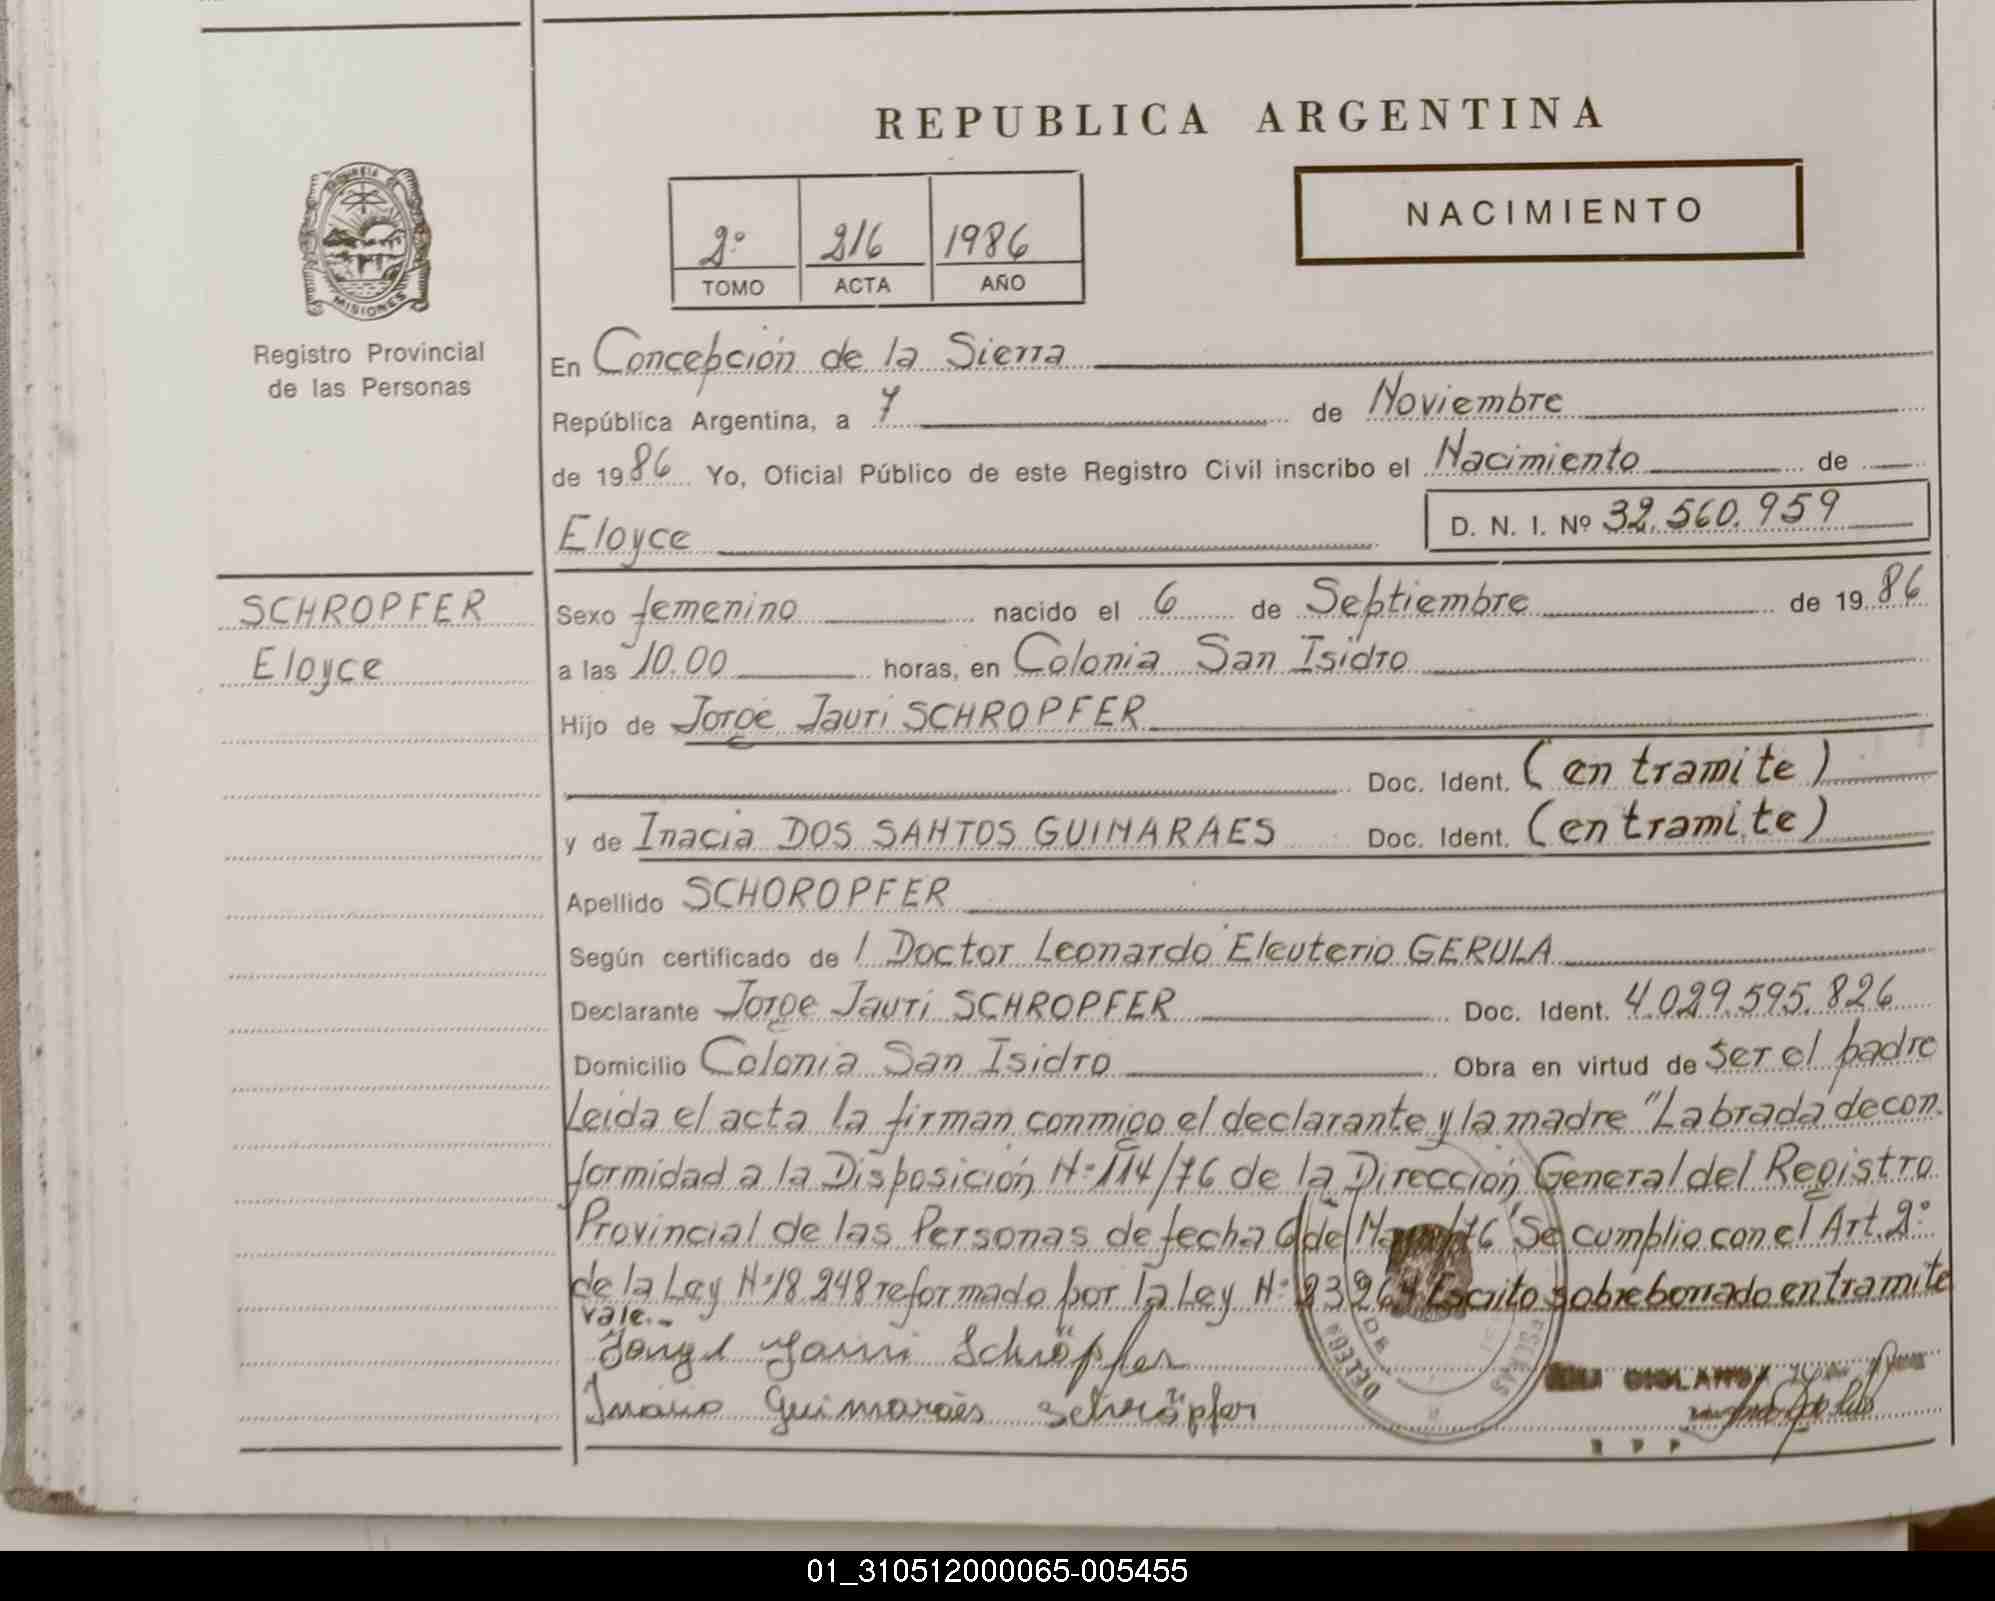 REPUBLICA ARGENTINA
NACIMIENTO
2º 216 1986
TOMO ACTA AÑO
PROVINCIA DE
MISIONES
Registro Provincial
de las Personas
En Concepción de la Sierra
República Argentina, a 7 de Noviembre
de 1986 Yo, Oficial Público de este Registro Civil inscribo el Nacimiento de
Eloyce D. N. I. Nº 32.560.959
SCHROPFER
Eloyce
Sexo femenino nacido el 6 de Septiembre de 1986
a las 10.00 horas, en Colonia San Isidro
Hijo de Jorge Jauri SCHROPFER
Doc. Ident. (en tramite)
y de Inacia DOS SANTOS GUIMARAES Doc. Ident. (en tramite)
Apellido SCHOROPFER
Según certificado de l Doctor Leonardo Eleuterio GERULA
Declarante Jorge Jauri SCHROPFER Doc. Ident. 4.029.595.826
Domicilio Colonia San Isidro Obra en virtud de ser el padre
Leida el acta la firman conmigo el declarante y la madre "Labrada de con
formidad a la Disposición Nº 114/76 de la Dirección General del Registro
Provincial de las Personas de fecha 6 de 76" Se cumplio con el Art. 2º
de la Ley Nº 18.248 reformado por la Ley Nº 23264 Escrito sobre borrado en tramite
vale.-
Jorge Jauri Schröpfer
Inacia Guimarães Schröpfer
01_310512000065-005455